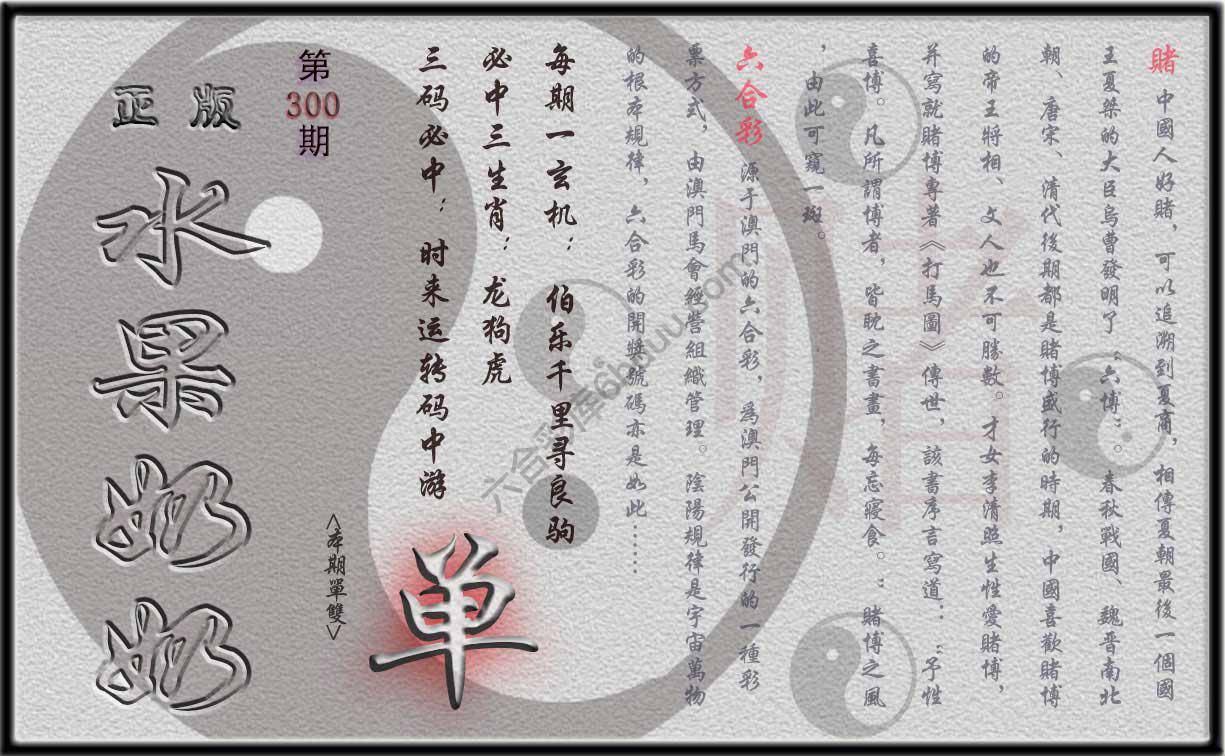 賭 中國人好賭，可以追溯到夏商，相傳夏朝最後一個國
王夏桀的大臣烏曹發明了“六博”。春秋戰國、魏晉南北
朝、唐宋、清代後期都是賭博盛行的時期，中國喜歡賭博
的帝王將相、文人也不可勝數。才女李清照生性愛賭博，
并寫就賭博專著《打馬圖》傳世，該書序言寫道：“予性
喜博。凡所謂博者，皆耽之書畫，每忘寢食。：賭博之風
，由此可窺一斑。
六合彩 源于澳門的六合彩，為澳門公開發行的一種彩
票方式，由澳門馬會經營組織管理。陰陽規律是宇宙萬物
的根本規律，六合彩的開獎號碼亦是如此……
每期一玄机：伯乐千里寻良驹
必中三生肖：龙狗虎
三码必中：时来运转码中游
第
300
期
正版
水果奶奶
<本期單雙>
单
賭
六合彩库6huuu.com